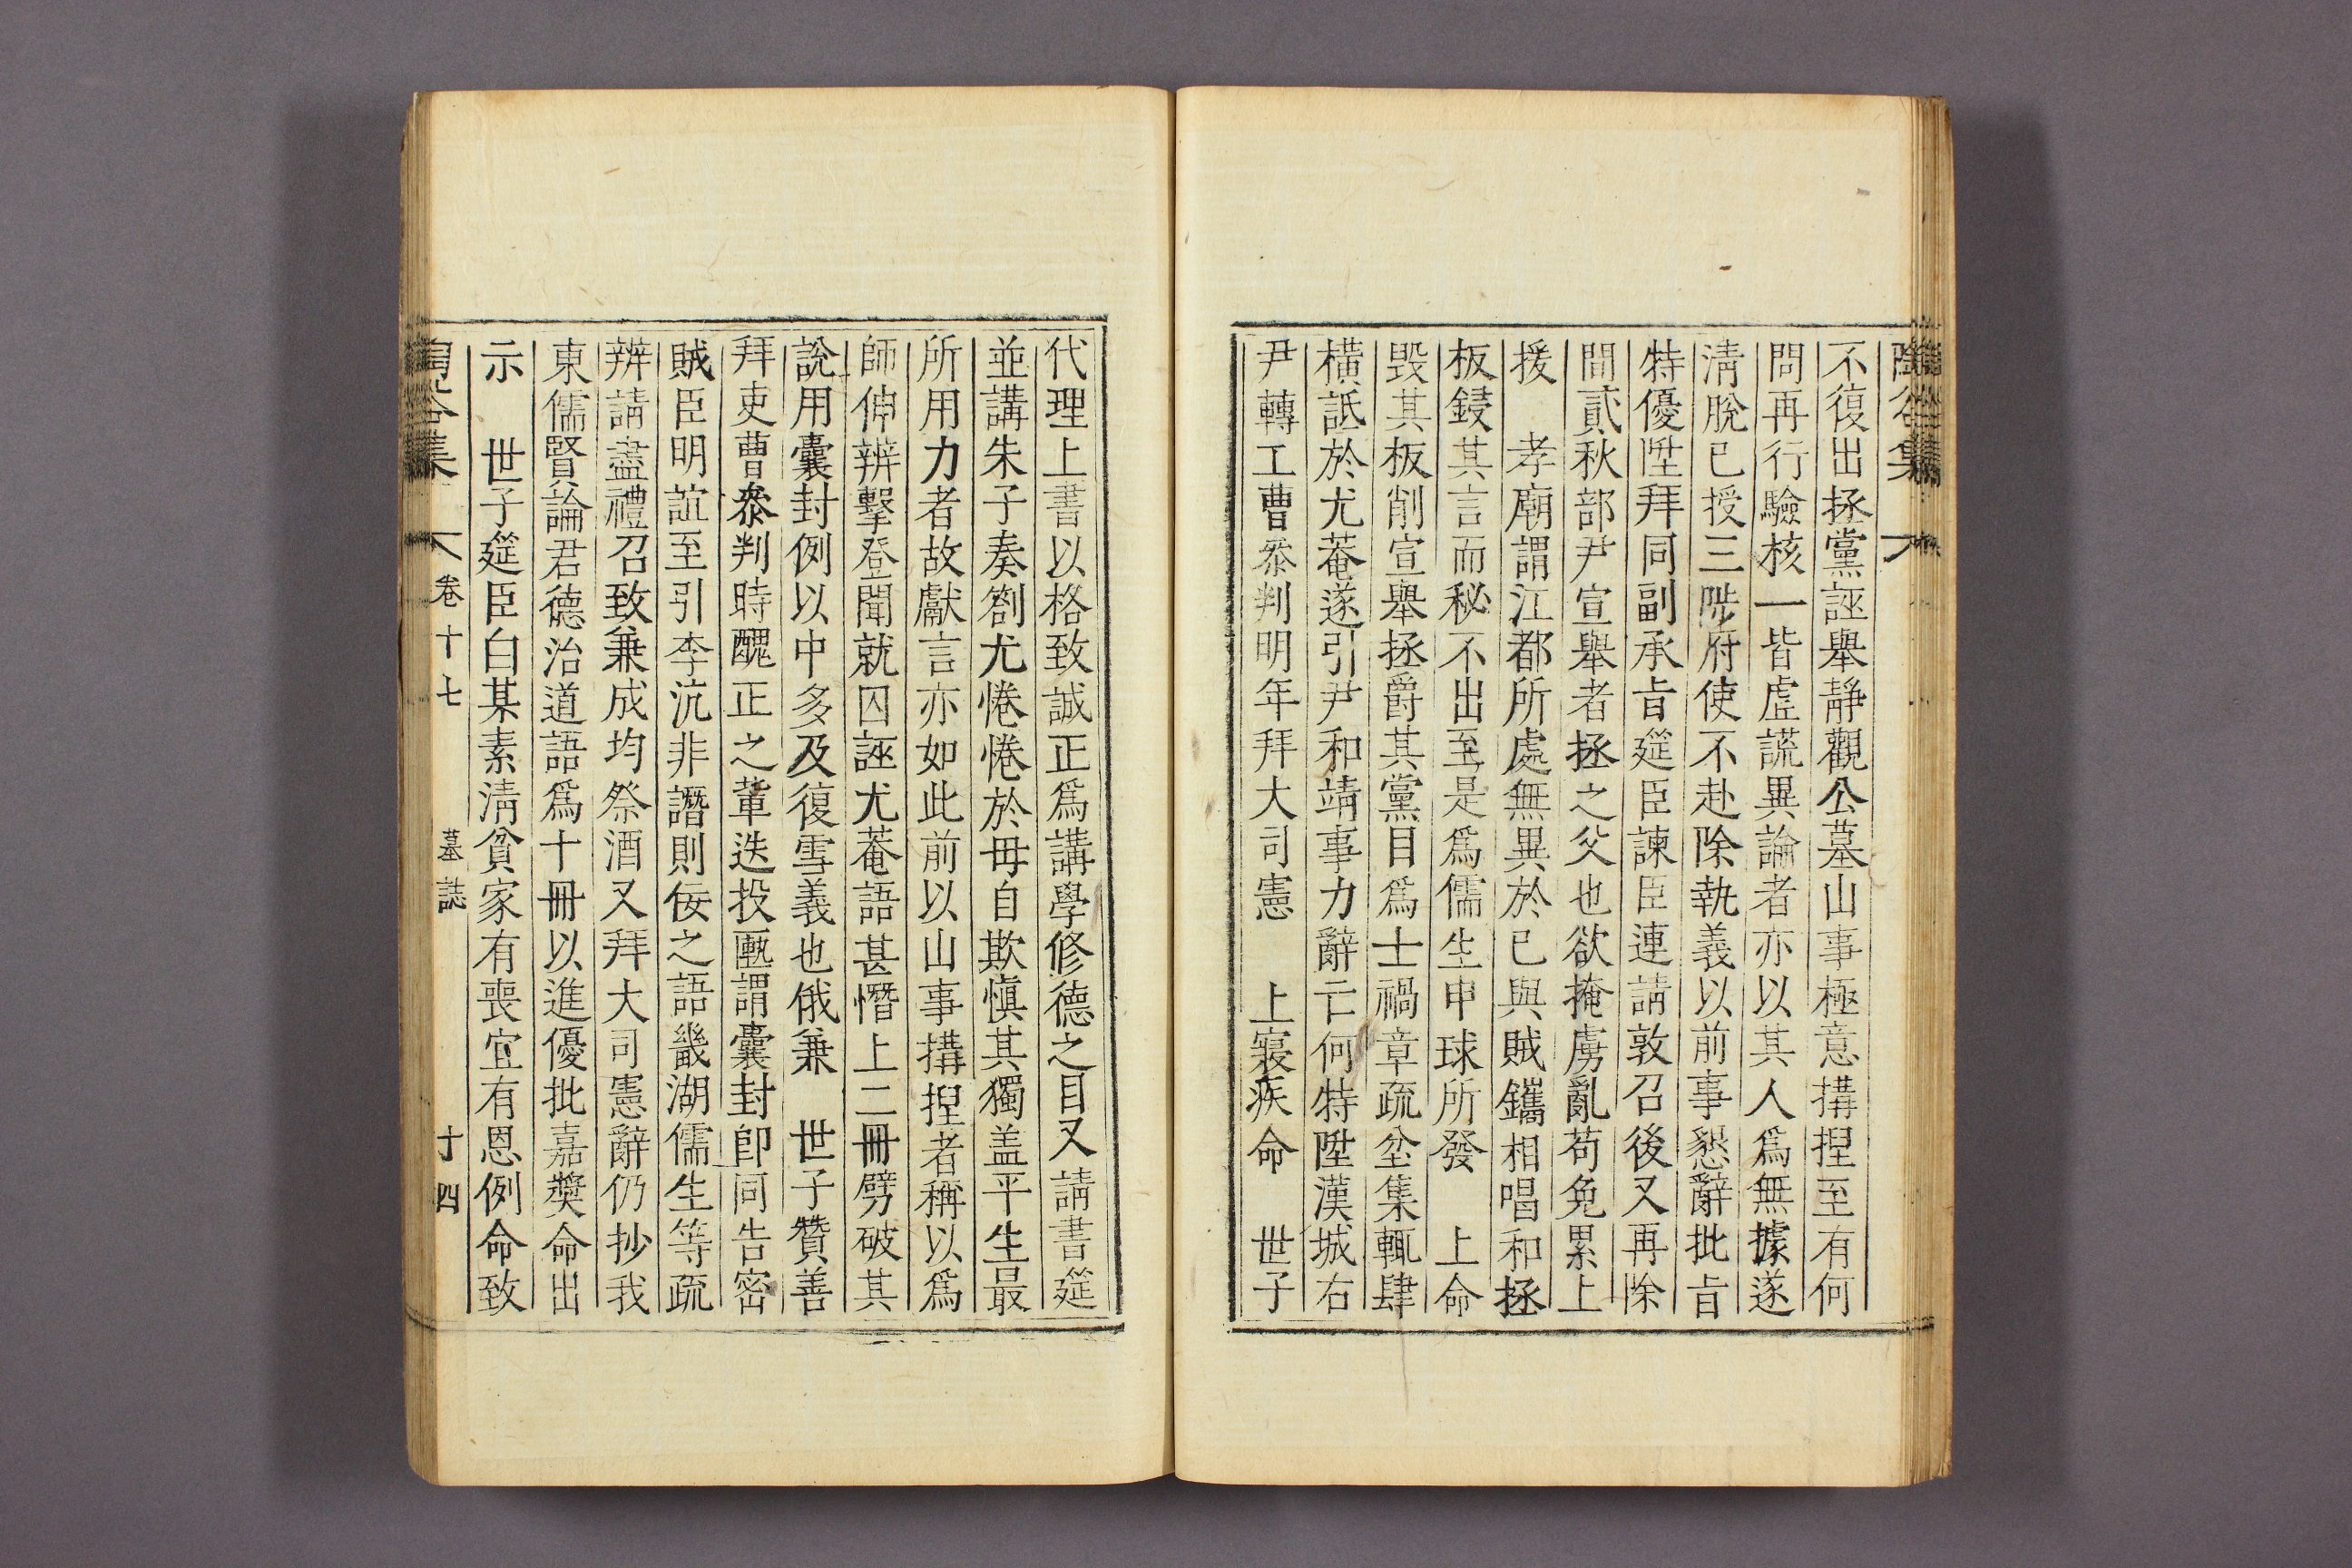 陶谷集
不復出拯黨誣舉靜觀公墓山事極意搆揑至有何
問再行驗核一皆虛謊異論者亦以其人爲無據遂
淸脫已授三陟府使不赴除執義以前事懇辭批旨
特優陞拜同副承旨筵臣諫臣連請敦召後又再除
間貳秋部尹宣舉者拯之父也欲掩虜亂苟免累上
援　孝廟謂江都所處無異於已與賊鑴相唱和拯
板鋟其言而秘不出至是爲儒生申球所發　上命
毁其板削宣舉拯爵其黨目爲士禍章疏坌集輒肆
橫詆於尤菴遂引尹和靖事力辭亡何特陞漢城右
尹轉工曹叅判明年拜大司憲　上寢疾命　世子
代理上書以格致誠正爲講學修德之目又請書筵
並講朱子奏劄尤惓惓於毋自欺愼其獨盖平生最
所用力者故獻言亦如此前以山事搆揑者稱以爲
師伸辨擊登聞就囚誣尤菴語甚憯上二冊劈破其
說用囊封例以中多及復雪義也俄兼　世子贊善
拜吏曹叅判時醜正之輩迭投匭謂囊封卽同告密
賊臣明誼至引李沆非譖則佞之語畿湖儒生等疏
辨請盡禮召致兼成均祭酒又拜大司憲辭仍抄我
東儒賢論君德治道語爲十冊以進優批嘉奬命出
示　世子筵臣白某素淸貧家有喪宜有恩例命致
陶谷集　卷十七　墓誌　十四